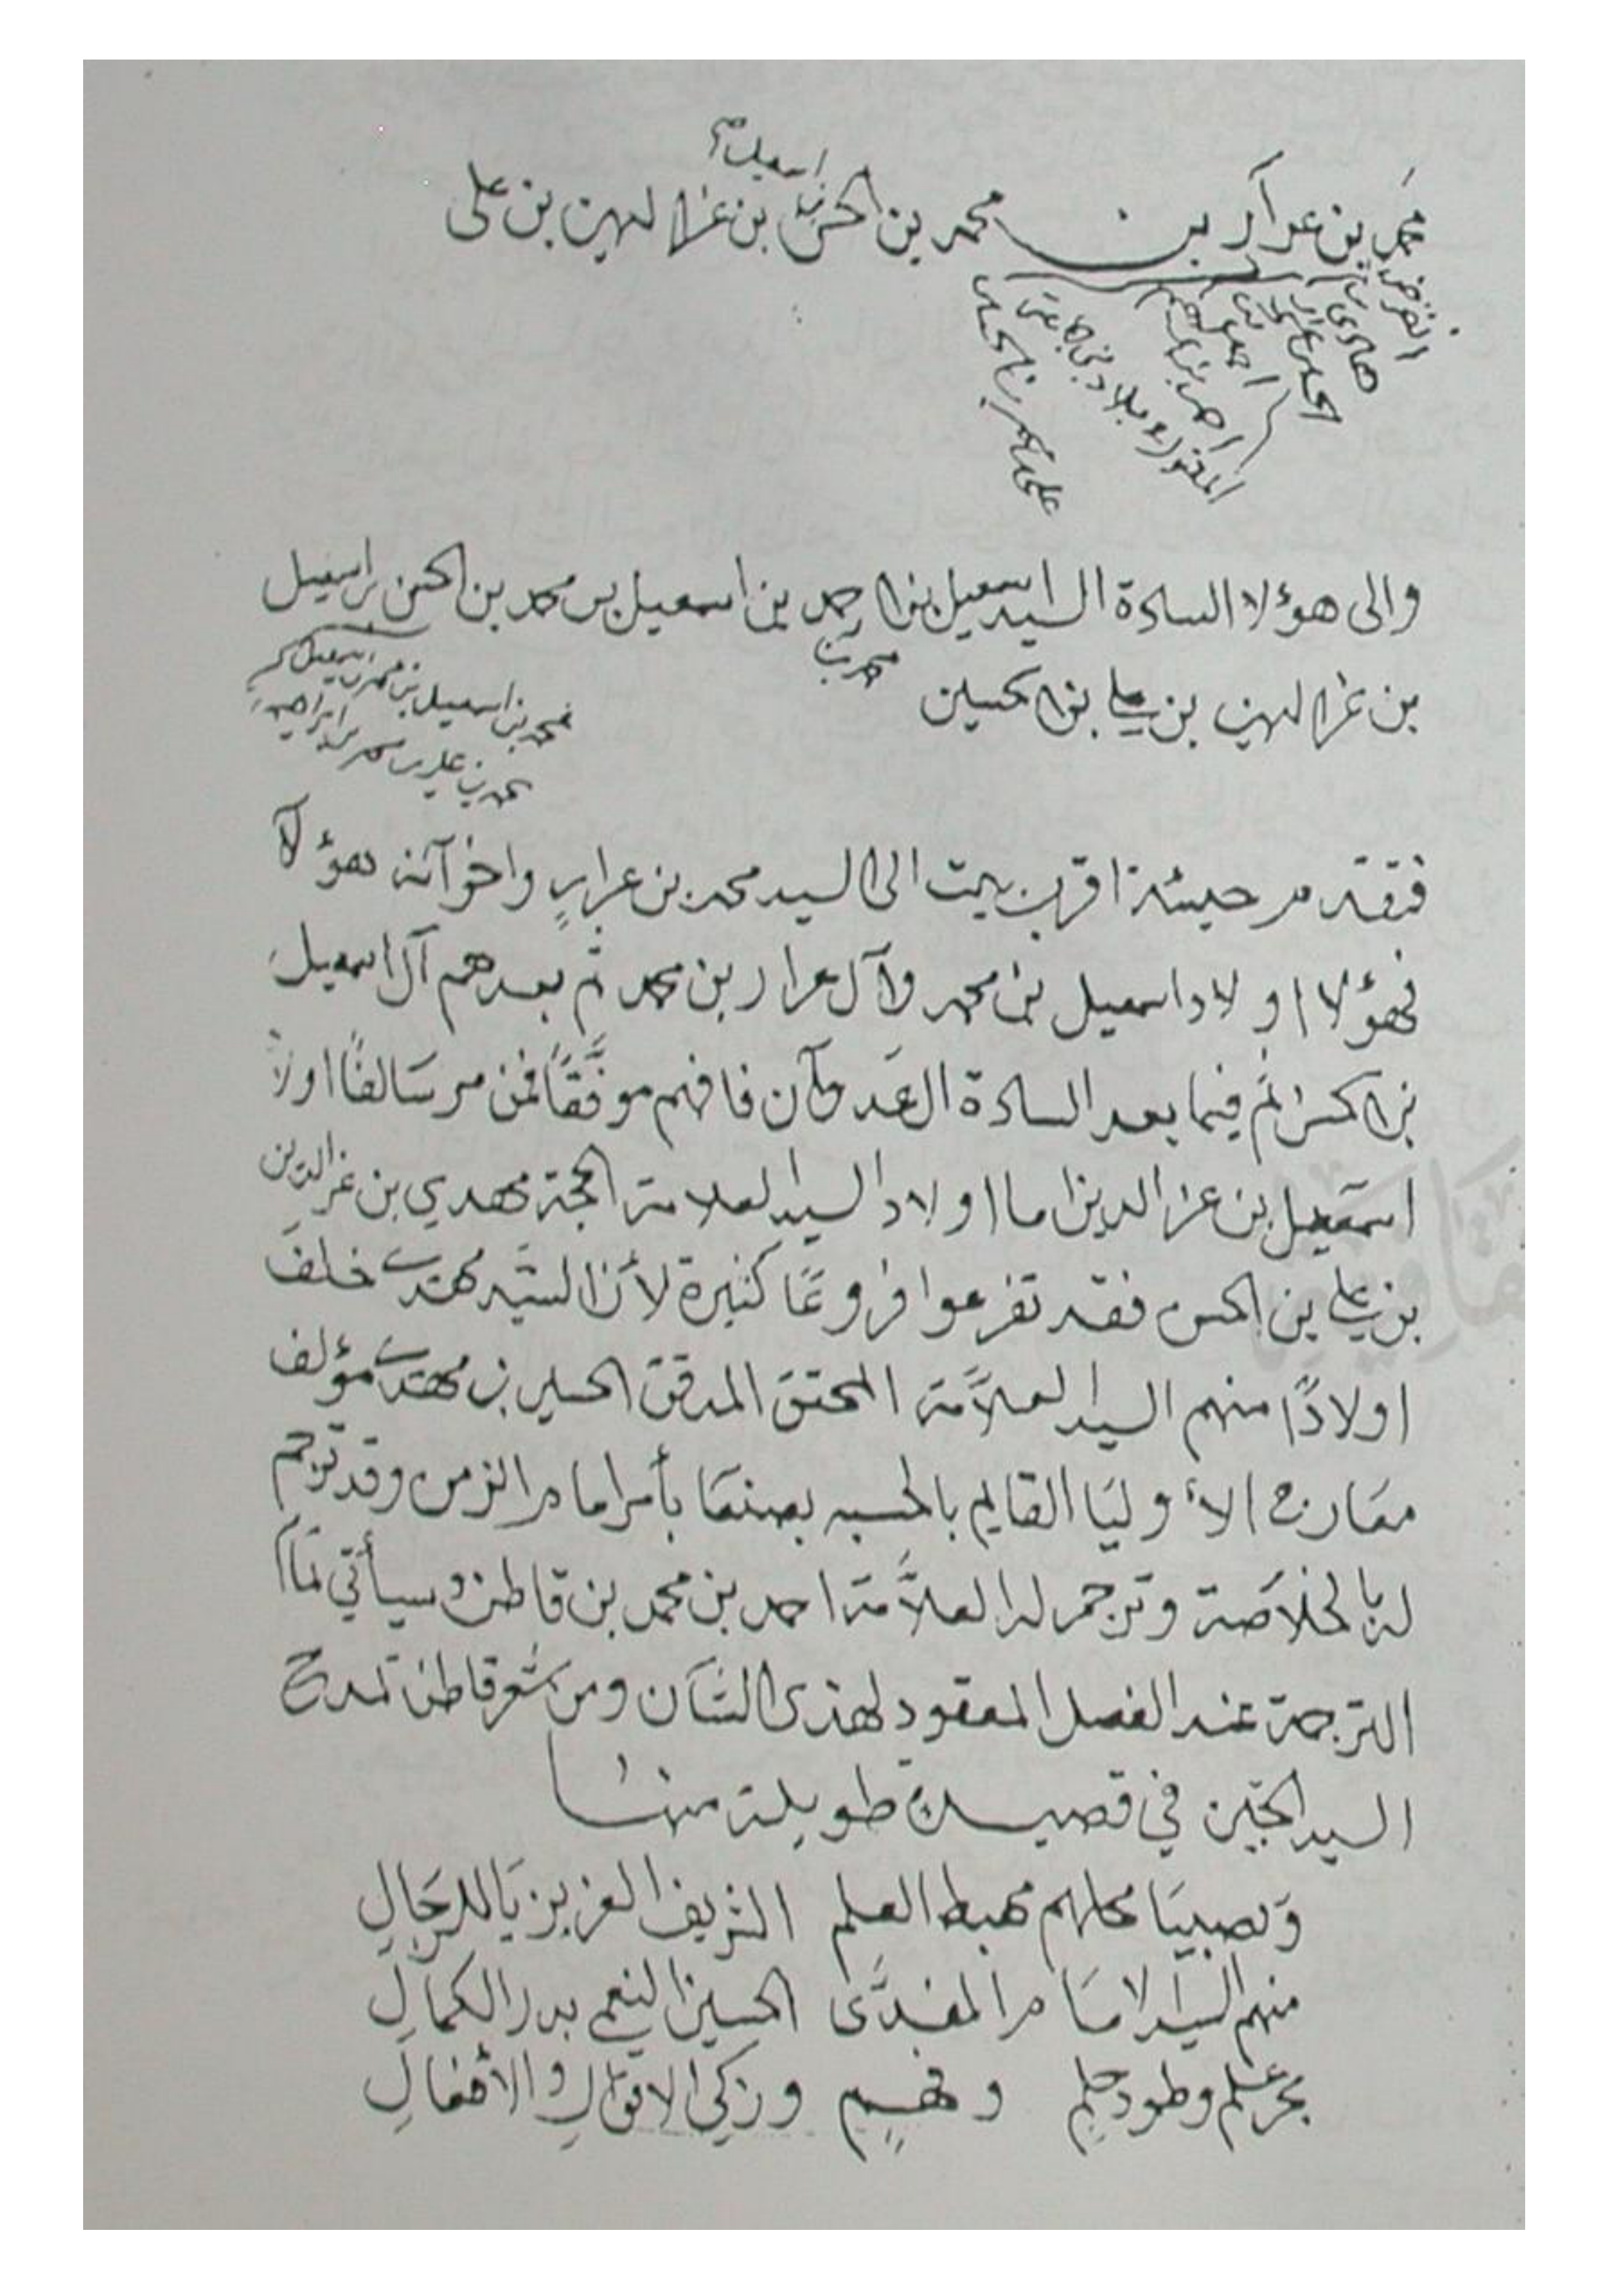 اسمعيل
محمد بن عرار بن محمد بن الحسن بن عز الدين بن علي
انقرض
هادي
احمد
والى هؤلا السادة السيد اسمعيل بن احمد بن اسمعيل بن محمد بن الحسن بن اسمعيل
محمد بن
بن عز الدين بن علي بن الحسين
محمد بن اسمعيل بن محمد بن اسمعيل
محمد بن علي بن محمد بن ابراهيم
فتقدم حينئذ اقرب بيت الى السيد محمد بن عرار واخوآنه هؤلآ
فهؤلا اولاد اسمعيل بن محمد وآل عرار بن محمد ثم بعدهم آل اسمعيل
بن الحسن ثم فيما بعد السادة العَدوآن فافهم موفَّقًا فمن مر سَالفًا اولاد
اسمعيل بن عز الدين اما اولاد السيد العلامة الحجة مهدي بن عز الدين
بن علي بن الحسن فقد تفرعوا فروعًا كثيرة لأن السيد مهدي خلف
اولادًا منهم السيد العلاَّمة المحقق المدقق الحسين بن مهدي مؤلف
معَارج الأوليَا القايم بالحسبه بصنعَا بأمر امام الزمن وقد ترجم
له بالخلاَصة وترجم له العلاَّمة احمد بن محمد بن قاطن وسيأتي تمَام
الترجمة عند الفصل المعقود لهذى الشآن ومن شعر قاطن تمدح
السيد الحسين في قصيدة طويلة منهَا
وَبصبيَا محلهم مهبط العلم الشريف العزيز يَا للرجَالِ
منهم السيد الامَام المفدَّى الحسين النعمي بدر الكمالِ
بحر علم وطود حلمٍ وفهمٍ وزكي الاقوَالِ والأفعَالِ